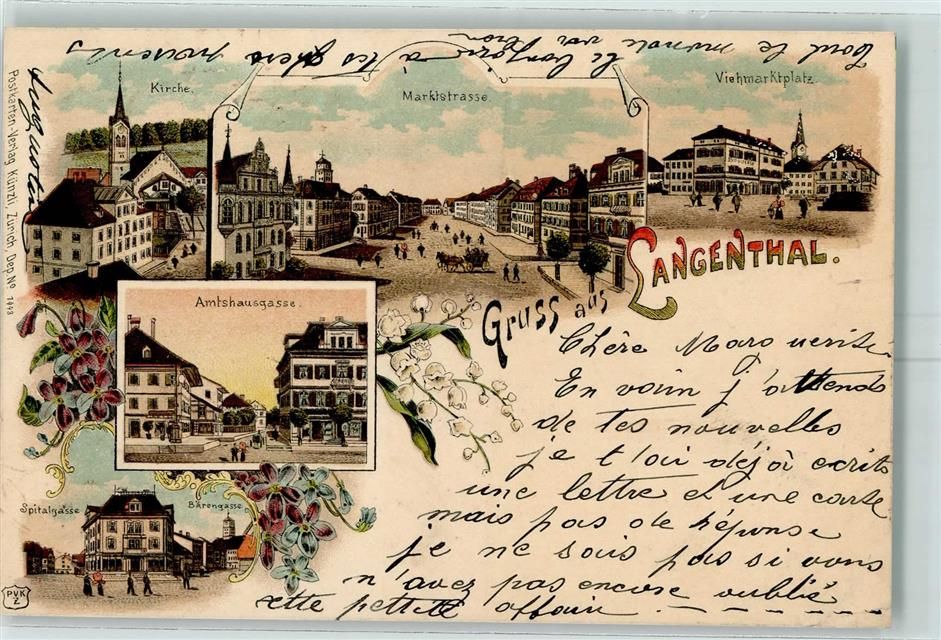 Tout le monde va bien
le bonjour à tes chers parents
Augustine
Kirche.
Marktstrasse.
Viehmarktplatz.
Postkarten-Verlag Künzli, Zürich, Dep. No 1443
Gruss aus LANGENTHAL.
Amtshausgasse.
Chère Marguerite
En vain j'attends
de tes nouvelles
je t'ai déjà écrit
une lettre et une carte
mais pas de réponse
je ne sais pas si vous
n'avez pas encore oublié
cette petite affaire
Spitalgasse
Bärengasse
PVK
Z